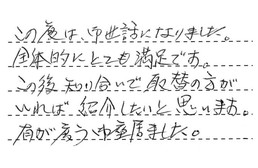 この度は、お世話になりました。
全体的にとても満足です。
この後知り合いで取替の方が
いれば紹介したいと思います。
有が度うお座居ました。